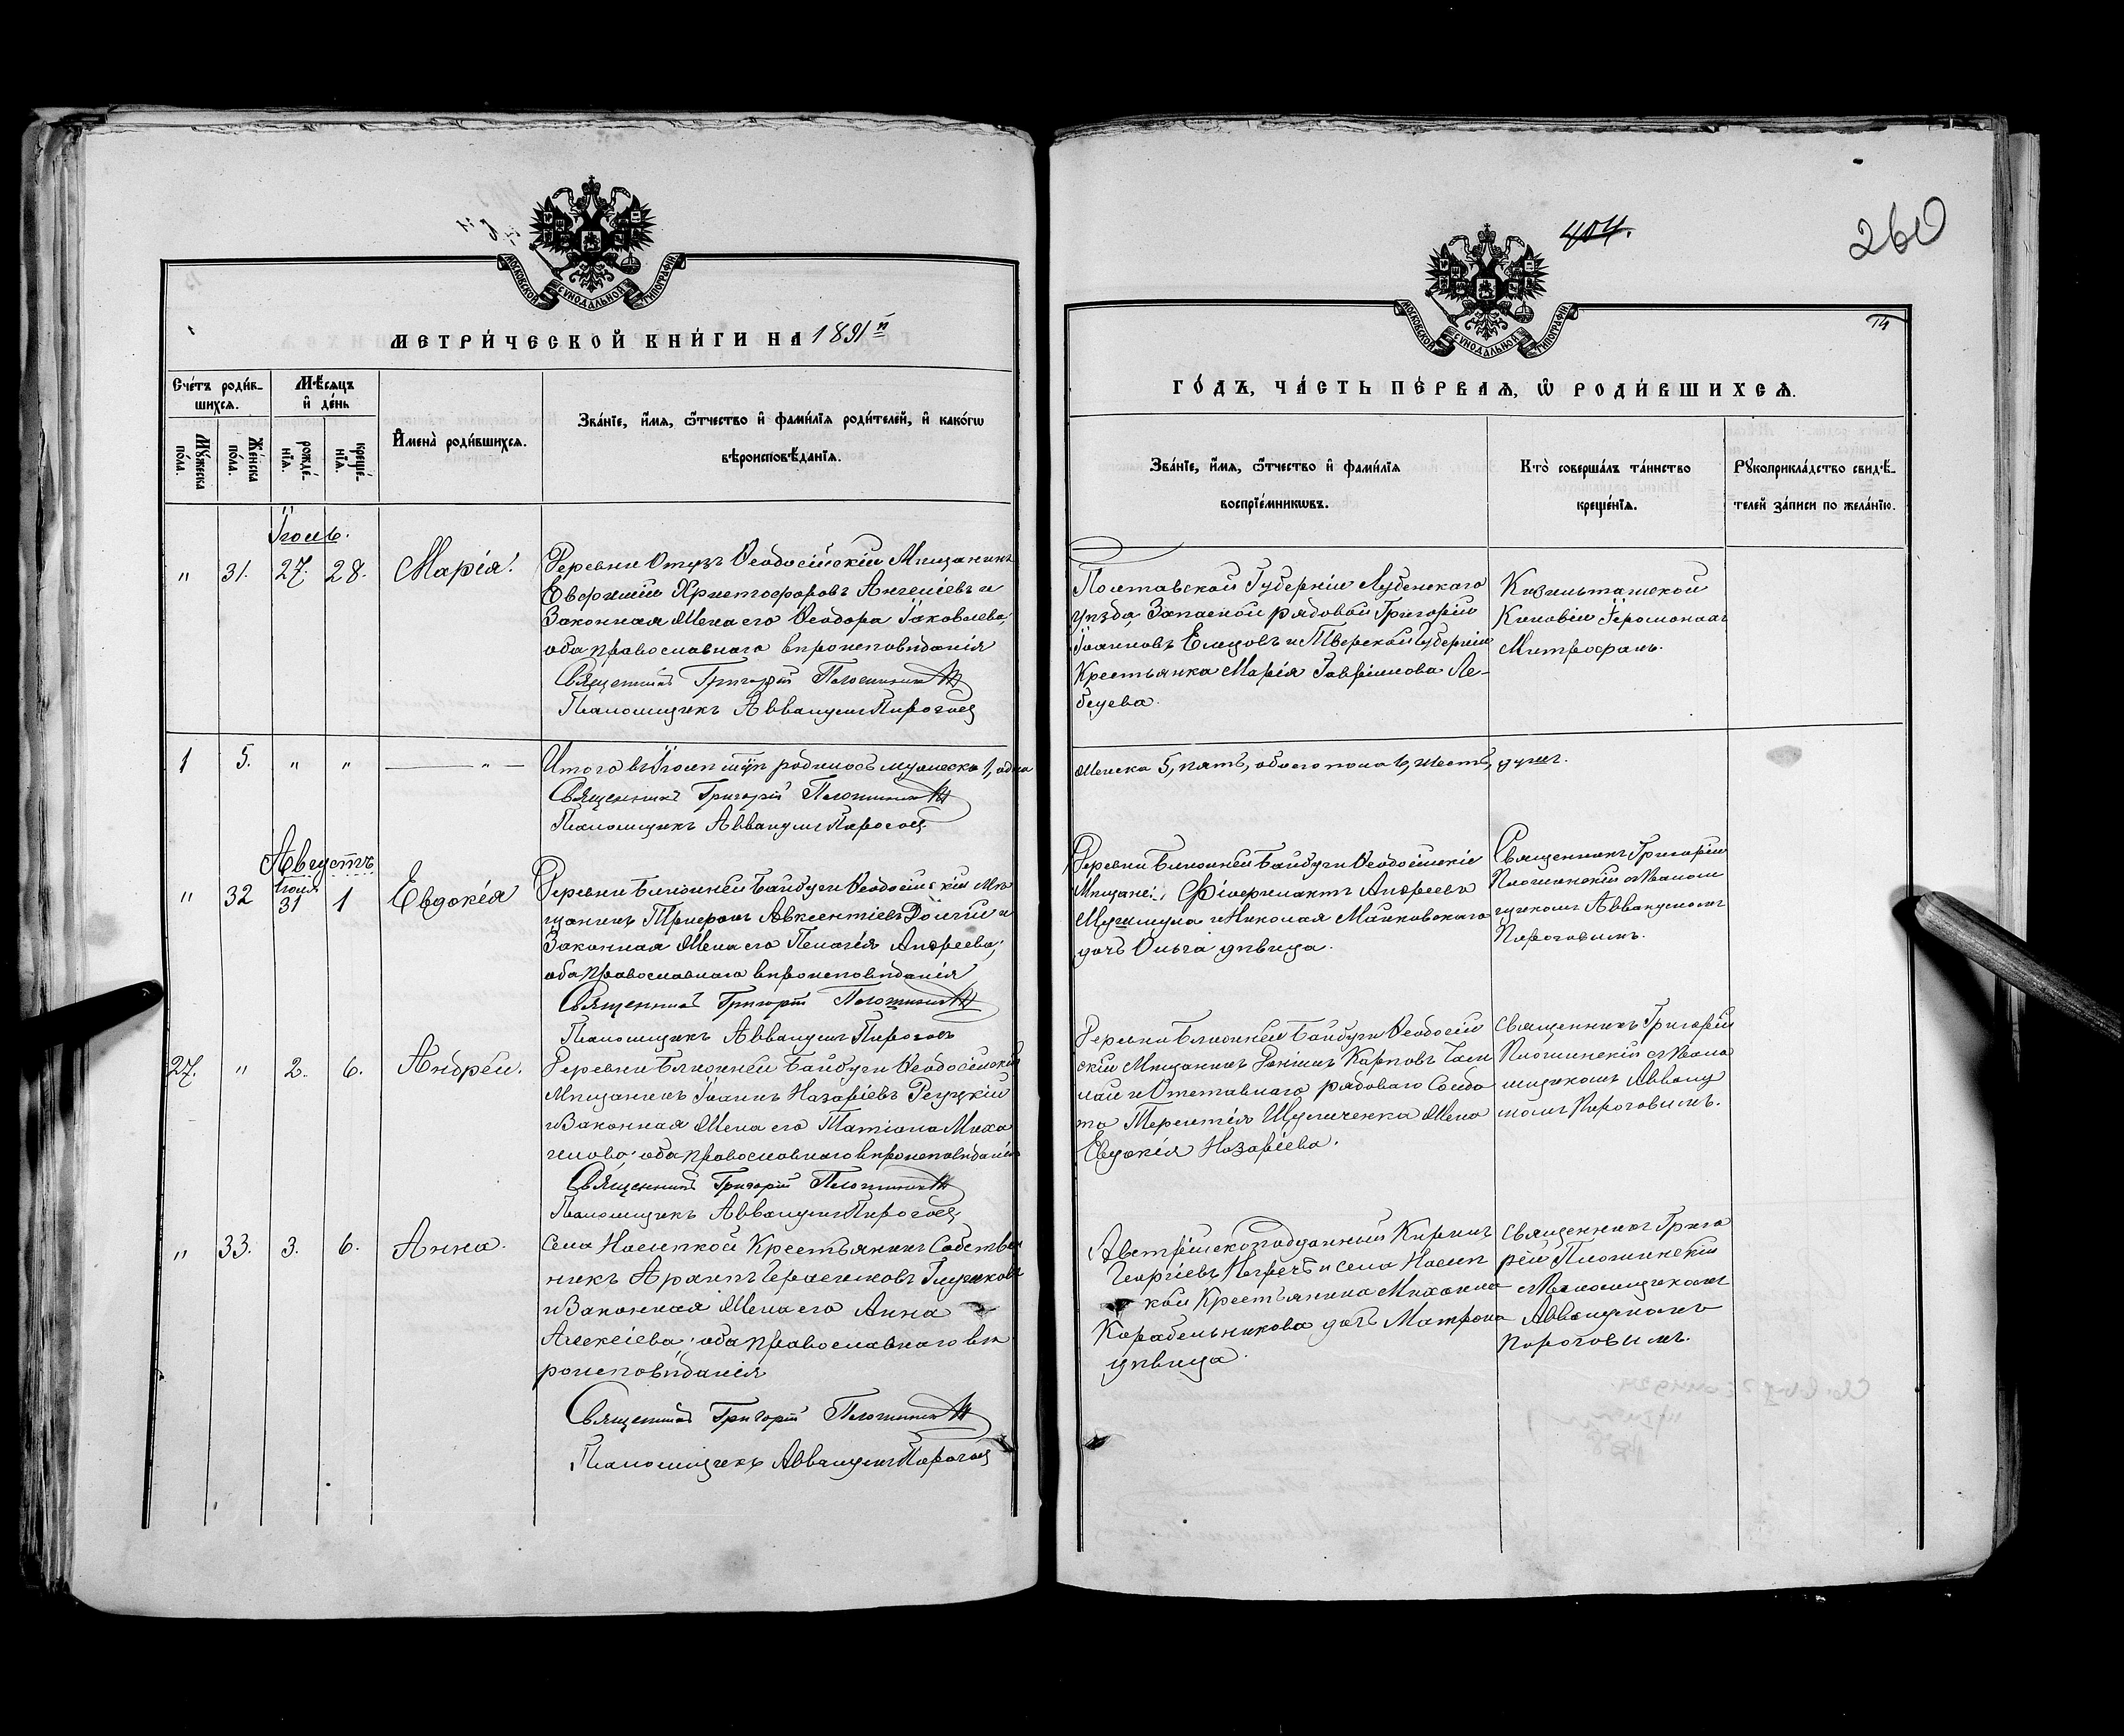 404.
260
МОСКОВСКОЙ СѴНОДАЛЬНОЙ ТИПОГРАФІИ
МЕТРИ́ЧЕСКОЙ КНИ́ГИ НА 1891й
Сче́тъ роди́в-
шихся.
Мѣ́сяцъ
и҆ де́нь
Мꙋ́жеска
по́ла.
Же́нска
по́ла.
рожде́-
нїѧ.
креще́-
нїѧ.
И҆мена̀ роди́вшихсѧ.
Зва́нїе, и҆́мѧ, ѻ҆́тчество и҆ фами́лїѧ роди́телей, и҆ како́гѡ
вѣроисповѣ́данїѧ.
Іюль.
" 31. 27. 28. Марія.
Деревни Отузъ Ѳеодосійскій Мѣщанинъ
Евфимій Христофоровъ Ангеліевъ и
Законная Жена его Ѳеодора Іаковлева;
оба православнаго вѣроисповѣданія
Священникъ Григорій
Псаломщикъ Аввакумъ Пироговъ
1 5. " " — " —
Итого въ Іюлѣ мѣсяцѣ родилось мужеска 1, одна
Священникъ Григорій
Псаломщикъ Аввакумъ Пироговъ
Августъ
" 32 Іюля 31 1 Евдокія
Деревни Ближней Байбуги Ѳеодосійскій Мѣ
щанинъ Авксентіевъ и
Законная Жена его Пелагія Андреева;
оба православнаго вѣроисповѣданія
Священникъ Григорій
Псаломщикъ Аввакумъ Пироговъ
27. " 2. 6. Андрей.
Деревни Ближней Байбуги Ѳеодосійскій
Мѣщанинъ Іоаннъ Назаріевъ Рецкій
и Законная Жена его Татіана Миха
илова; оба православнаго вѣроисповѣданія
Священникъ Григорій
Псаломщикъ Аввакумъ Пироговъ
" 33. 3. 6. Анна.
Села Насыпкой Крестьянинъ Собствен
никъ Архипъ Герасимовъ Глушковъ
и Законная Жена его Анна
Алексіева; оба православнаго вѣ
роисповѣданія
Священникъ Григорій
Псаломщикъ Аввакумъ Пироговъ
МОСКОВСКОЙ СѴНОДАЛЬНОЙ ТИПОГРАФІИ
ГО́ДЪ, ЧА́СТЬ ПЕ́РВАѦ, Ѡ҆ РОДИ́ВШИХСѦ.
Зва́нїе, и҆́мѧ, ѻ҆́тчество и҆ фами́лїѧ
воспрїе́мникѡвъ.
Кто̀ соверша́лъ та́инство
креще́нїѧ.
Рꙋкоприкла́дство свидѣ́-
телей за́писи по жела́нїю.
Полтавской Губерніи Лубенскаго
уѣзда Запасной рядовой Григорій
Іоанновъ Ельцовъ и Тверской Губерніи
Крестьянка Марія Гавріилова Ле-
бедева.
Кизильташской
Киновіи Іеромонахъ
Митрофанъ.
Женска 5, пять, обоего пола 6, шесть, душъ.
Деревни Ближней Байбуги Ѳеодосійскіе
Мѣщане: Андреевъ
и Николая Маньковскаго
дочь Ольга дѣвица.
Священникъ Григорій
съ Псалом
щикомъ Аввакумомъ
Пироговымъ.
Деревни Ближней Байбуги Ѳеодосій
скій Мѣщанинъ Карповъ
и Отставнаго рядоваго Солда
та Терентія Шульженка Жена
Евдокія Назаріева.
Священникъ Григорій
съ Псало
мщикомъ Авваку
момъ Пироговымъ.
Австрійскоподданный Кириллъ
Георгіевъ и села Насып
кой Крестьянина Михаила
Корабельникова дочь Матрона
дѣвица.
Священникъ Григо
рій
съ Псаломщикомъ
Аввакумомъ
Пироговымъ.